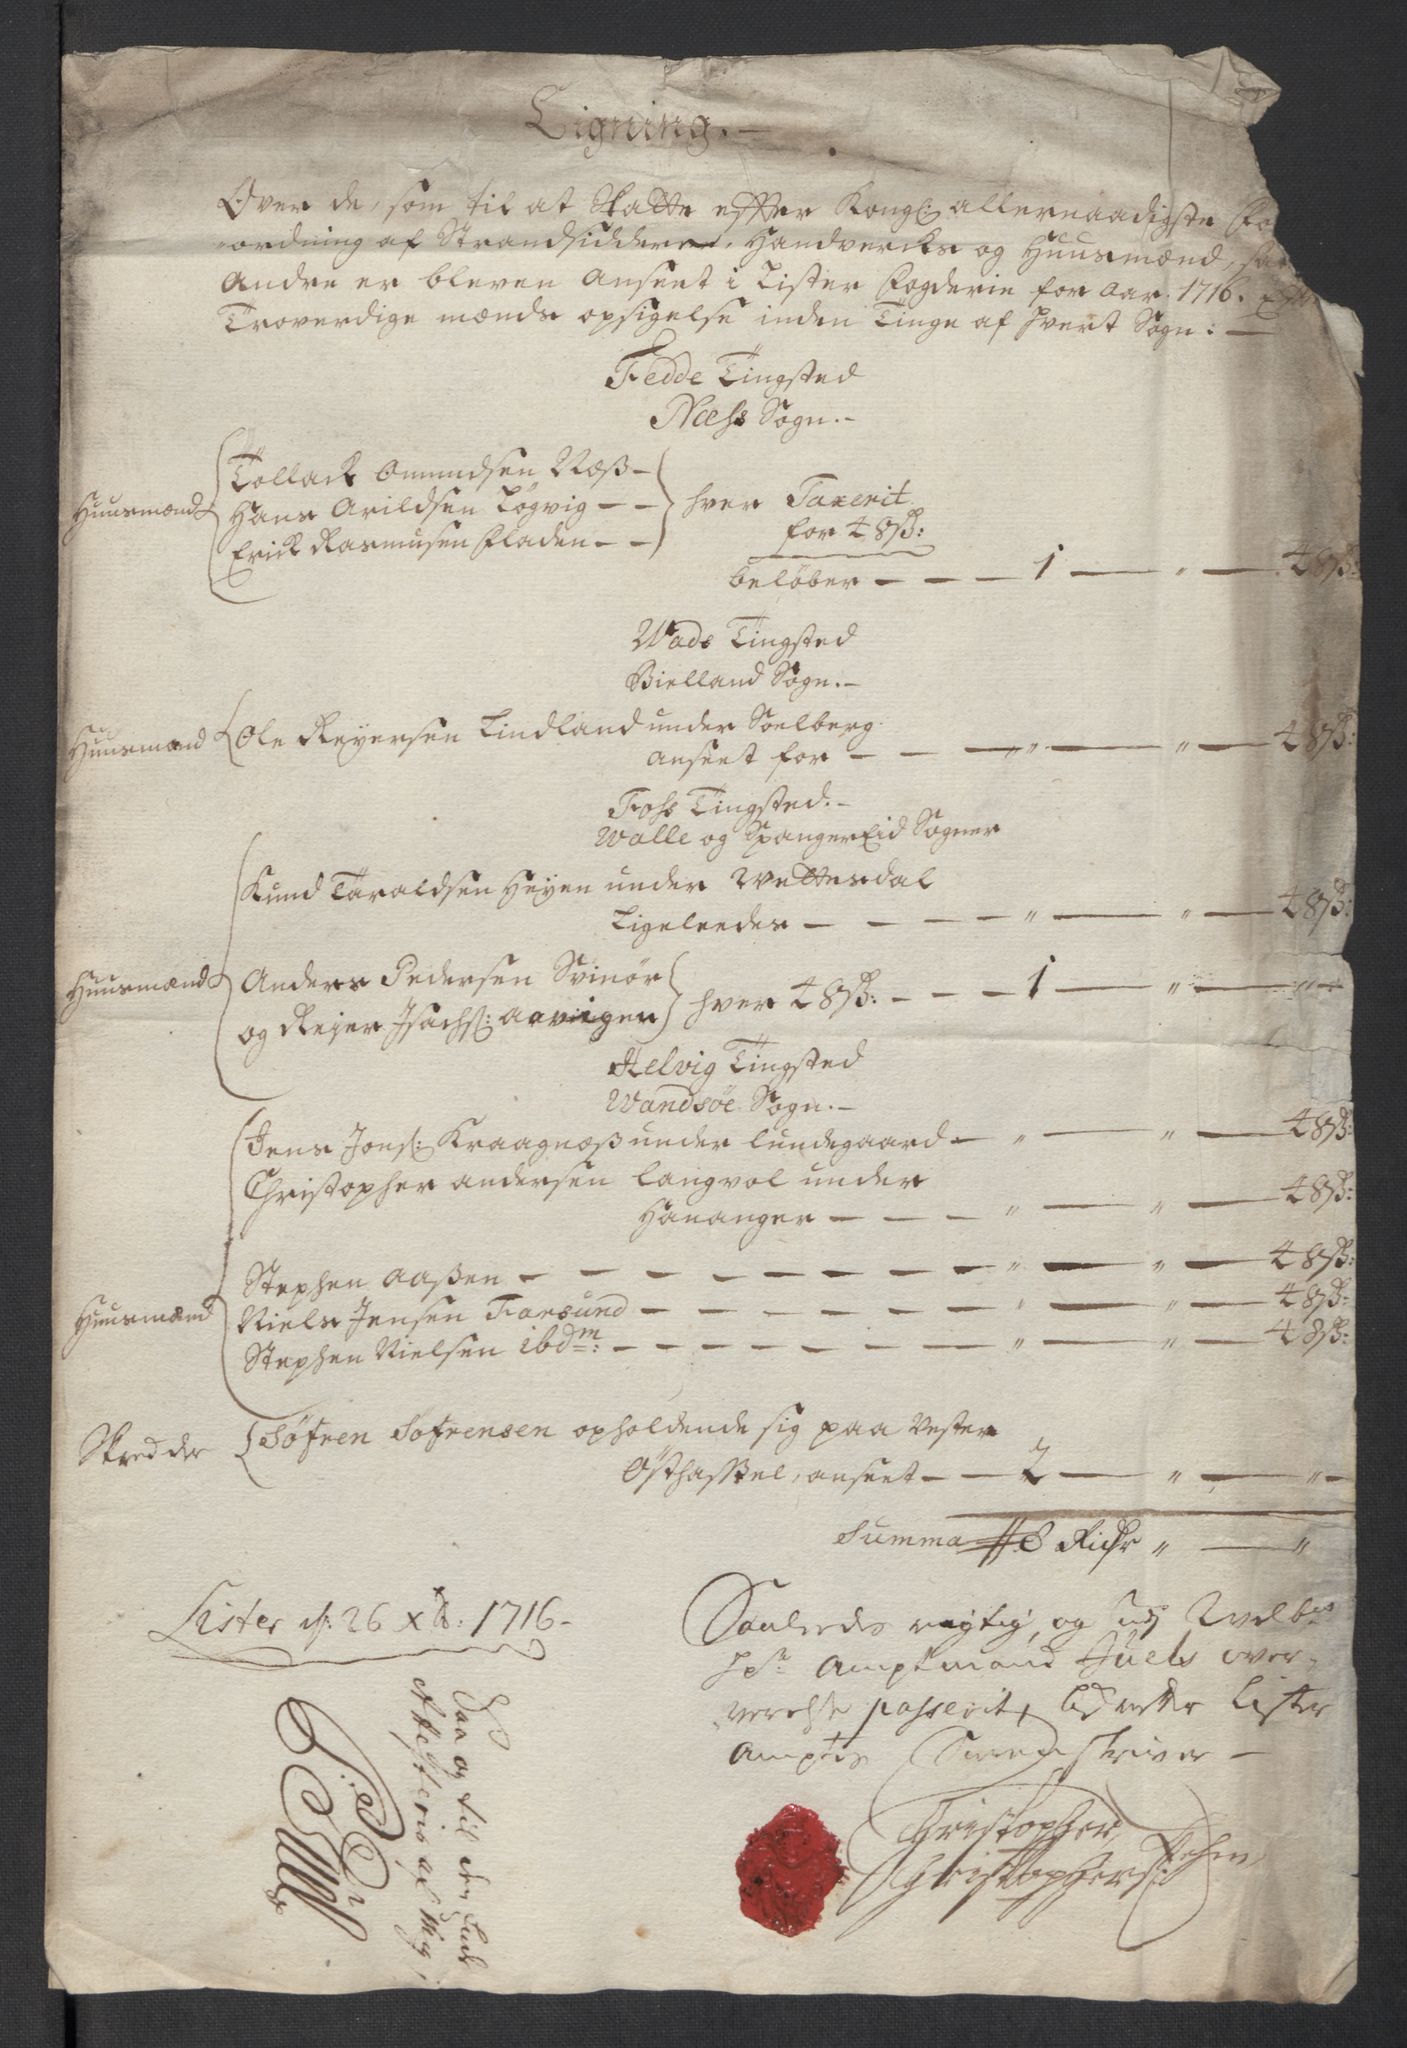 Ligning.
Over de, som til at Skatte effter Kongl: allernaadigste For
ordning af Strandsiddere, Handvercks og Huusmænd,
Andre er bleven Anseet i Lister Fogderie for Aar. 1716.
Troverdige mænds opsigelse inden Tinge af hvert Sogn:
Fedde Tingsted
Næss Sogn.
Huusmænd
Tollack Omundsen Næss
Hans Arildsen Løgvig
Erick Rasmusen Fladen
hver Taxerit
for 48ß:
beløber 1 " 48ß:
Wads Tingsted
Bielland Sogn.
Huusmænd Ole Reyersen Lindland under Soelberg
anseet for " " 48ß:
Foss Tingsted.
Walle og SpangerEid Sogner
Knud Taraldsen Heyen under Wettesdal
Ligeleedes " " 48ß:
Huusmænd
Anders Pedersen Svinør
og Reier Isachs: Aavigen
hver 48ß: 1 " "
Helvig Tingsted
Wandsøe Sogn.
Jens Jons: Kraagnæß under Lundegaard " " 48ß:
Christopher Andersen Langvol under
Hananger " " 48ß:
Stephen Aaßen " " 48ß:
Huusmænd
Niels Jensen Farsund " " 48ß:
Stephen Nielsen ibdm: " " 48ß:
Skredder Søfren Søfrensen opholdende sig paa Vester
Østhassel, anseet 2 " "
Summa 8 Richr " "
Lister d: 26 Xbr: 1716
Saaledes rigtig, og udj Welb:
Hr: Amptmand Juels over-
verelse passerit, Lister
Amptes Sorenskriver
Christopher
Christophers: Fehn
Saa og til
effteris af Mig,